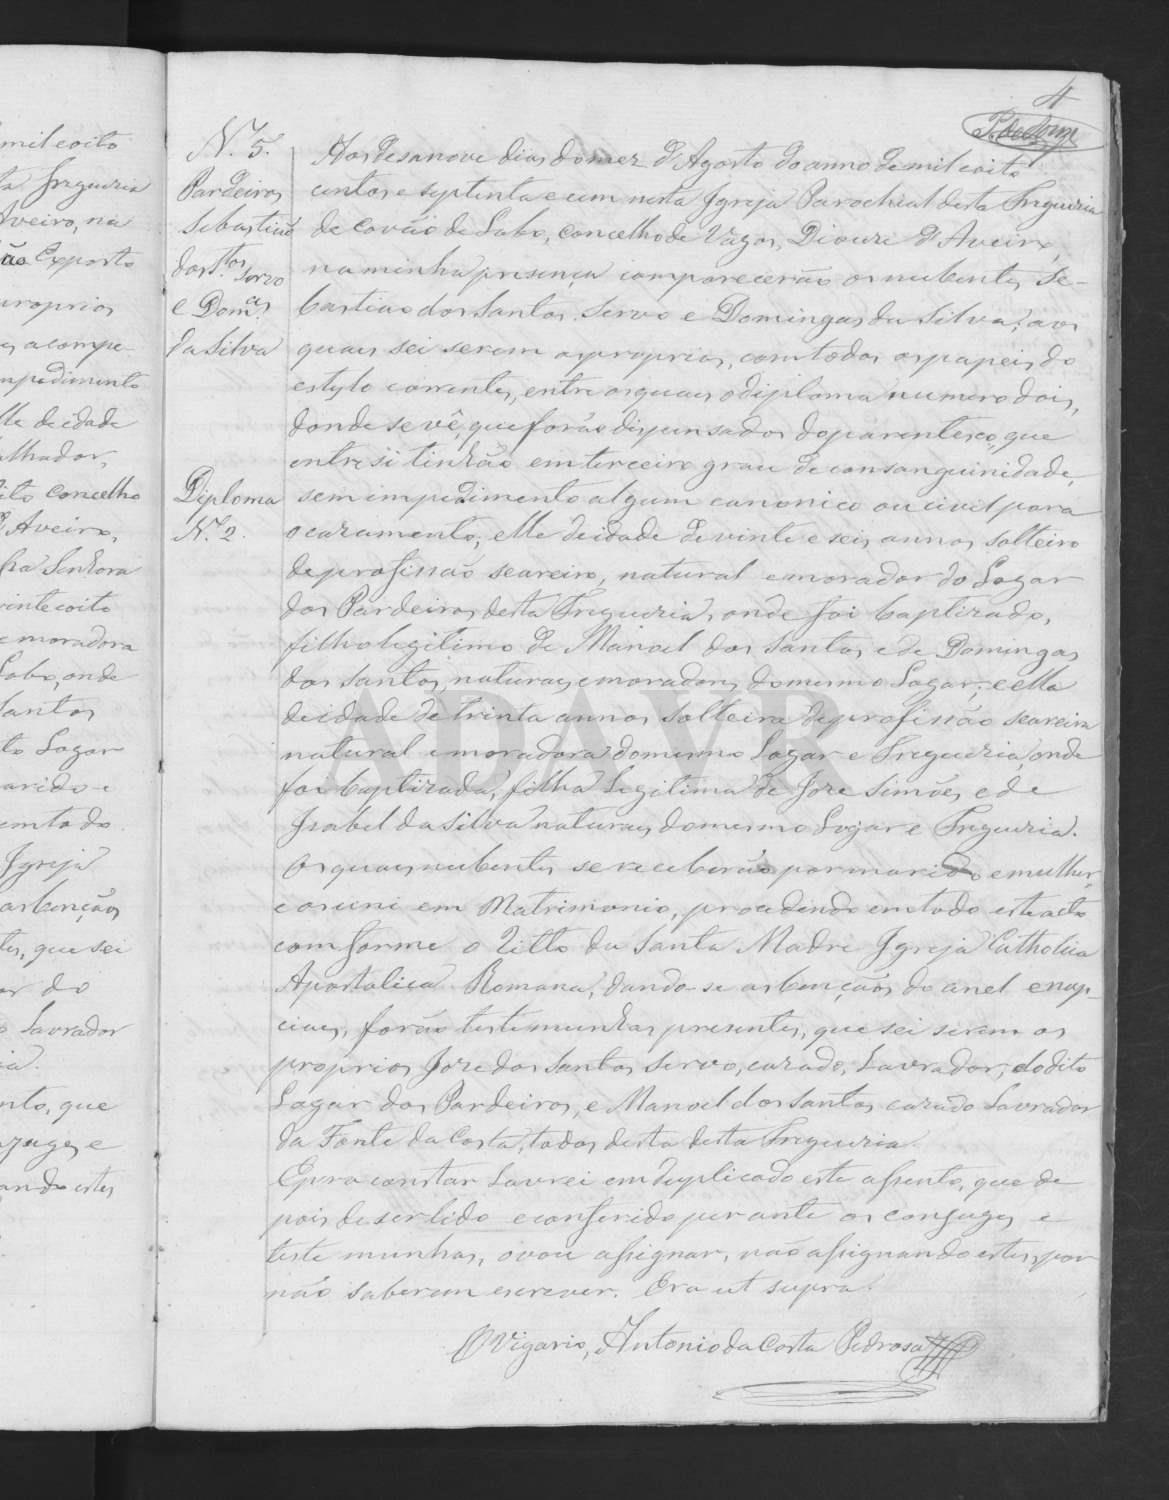 4
N.º 5.
Pardeiros
Sebastião
dos S.tos Servo
e Dom.as
da Silva
Aos desanove dias do mez d'Agosto do anno de mil e oito
centos e septenta e um nesta Igreja Parochial desta Freguezia
de Covão de Lobo, Concelho de Vagos, Diocese d'Aveiro,
na minha presença comparecerão os nubentes, Se-
bastiao dos Santos Servo e Domingas da Silva; aos
quaes sei serem os proprios, com todos os papeis do
estylo correntes, entre os quaes o diploma numero dois,
donde se vê, que forão dispensados do parentesco, que
entre si tinhão em terceiro grau de consanguinidade,
Diploma
N.º 2.
sem impedimento algum canonico ou civil para
o casamento; elle de idade de vinte e seis annos solteiro
de profissão seareiro, natural e morador do Logar
dos Pardeiros desta Freguezia, onde foi baptizado,
filho legitimo de Manoel dos Santos e de Domingas
dos Santos, naturaes e moradores do mesmo Logar; e ella
de idade de trinta annos solteira de profissão seareira
natural e moradora do mesmo Logar e Freguezia, onde
foi baptizada, filha Legitima de Joze Simões, e de
Isabel da Silva naturaes do mesmo Logar e Freguezia.
Os quaes nubentes se receberão por marido e mulher,
e os uni em Matrimonio, procedendo em todo este acto
comforme o Ritto da Santa Madre Igreja Catholica
Apostolica Romana, dando-se as bençãos do anel e nup-
ciaes, forão testemunhas presentes, que sei serem os
proprios Joze dos Santos Servo, cazado, Lavrador, do dito
Logar dos Pardeiros, e Manoel dos Santos cazado Lavrador
da Fonte da Costa, todos desta desta Freguezia.
E pra constar Lavrei em duplicado este assento, que de
pois de ser lido e conferido per ante os conjuges e
teste munhas, o vou assignar, não assignando estes, por
não saberem escrever. Era ut supra.
O Vigario, Antonio da Costa Pedrosa
ADAVR
mil e oito
ta Freguezia
Aveiro, na
ão Exposto
proprios
Elle de idade
alhador,
ito Concelho
d'Aveiro,
sa Senhora
vinte e oito
e moradora
Lobo, onde
Santos
to Logar
arido e
em todo
Igreja
as bençãos
tes, que sei
or do
o Lavrador
ia.
nto, que
njuges e
ando estes